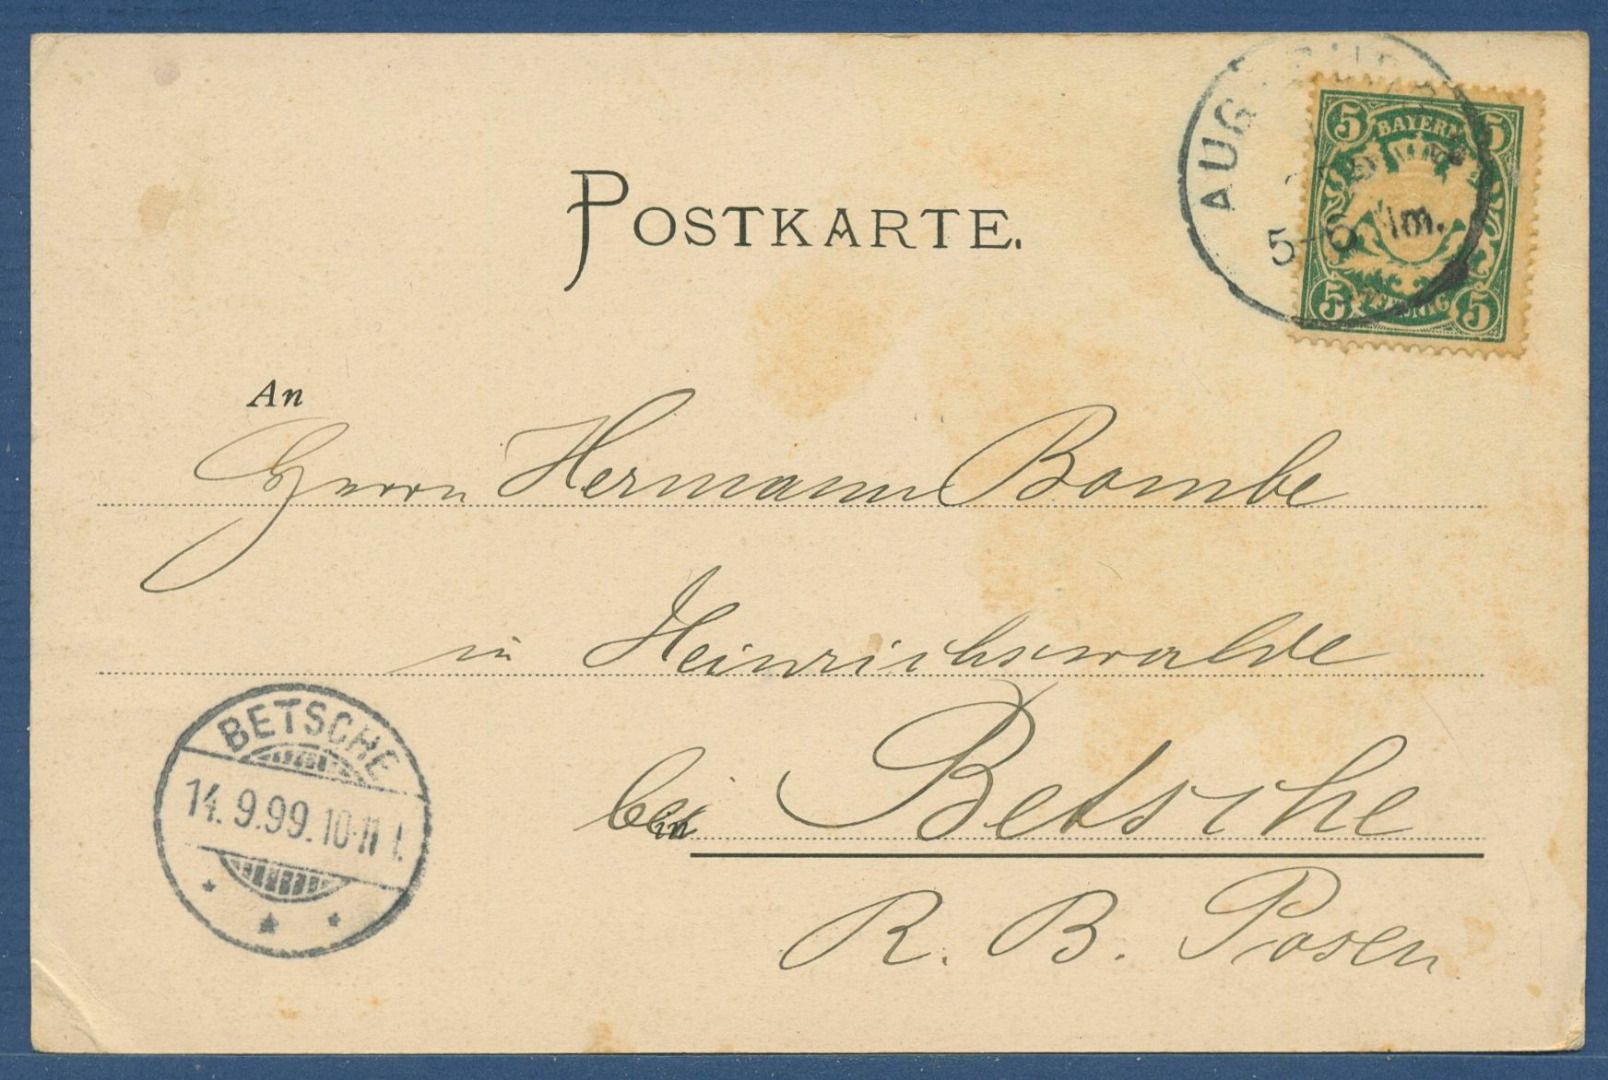 POSTKARTE.
5 BAYERN 5
5 PFENNIG 5
5-6 Nm.
An
Herrn Hermann Bombe
in Heinrichswalde
bei in Betsche
R. B. Posen
BETSCHE
14. 9.99. 10-11